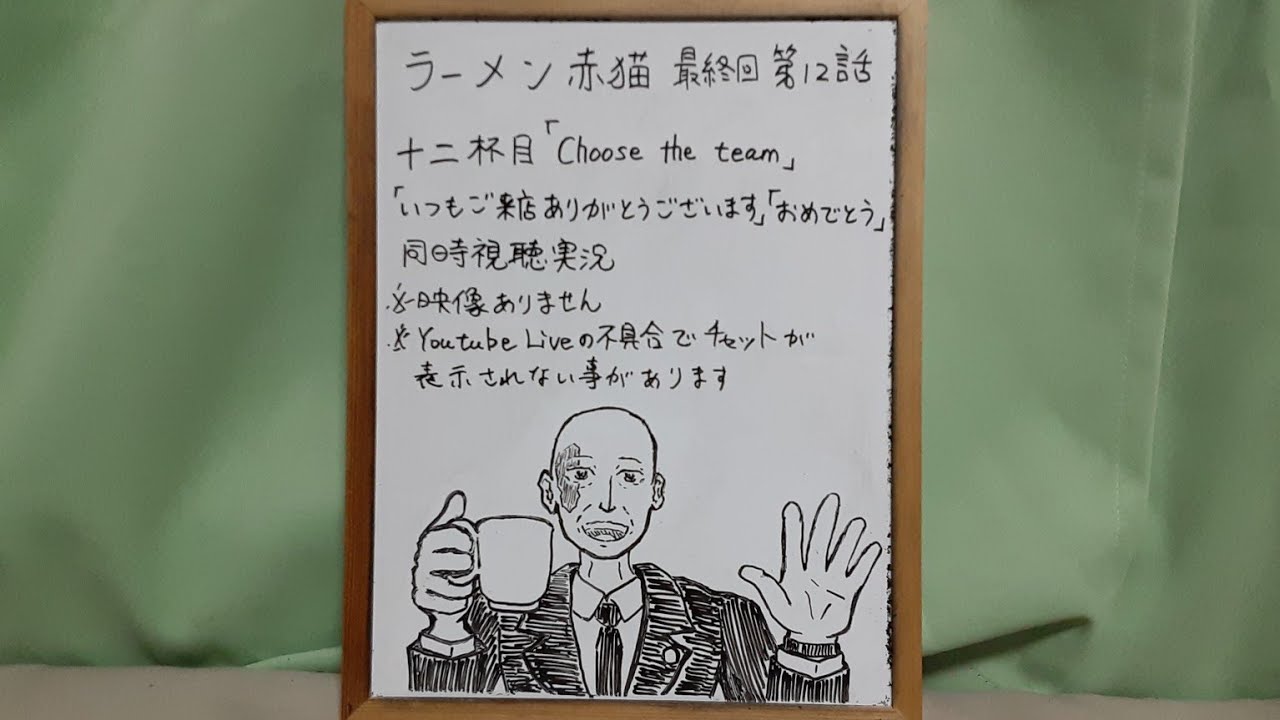 ラーメン赤猫 最終回 第12話
十二杯目「Choose the team」
「いつもご来店ありがとうございます」「おめでとう」
同時視聴実況
※映像ありません
※Youtube Liveの不具合でチャットが
表示されない事があります